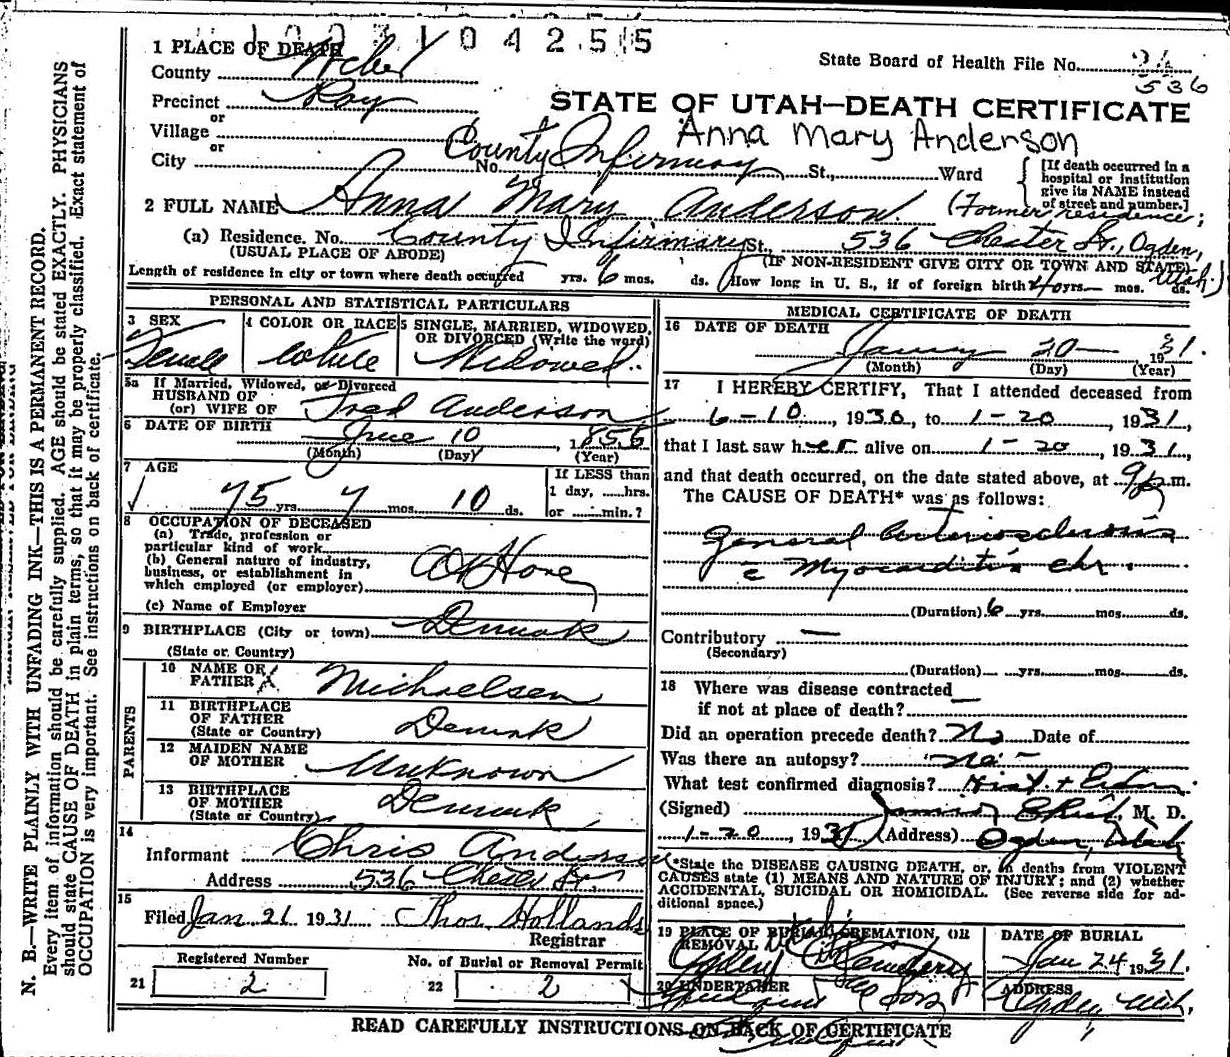 1 0 4 2 5 5
1 PLACE OF DEATH
County Weber
State Board of Health File No. 536
Precinct Roy
or
Village
or
City
STATE OF UTAH—DEATH CERTIFICATE
Anna Mary Anderson
No. County Infirmary St., Ward
[If death occurred in a hospital or institution give its NAME instead of street and number.]
2 FULL NAME Anna Mary Anderson (Former residence;
(a) Residence. No. County Infirmary St., 536 Chester St., Ogden, Utah.)
(USUAL PLACE OF ABODE) (IF NON-RESIDENT GIVE CITY OR TOWN AND STATE)
Length of residence in city or town where death occurred yrs. 6 mos. ds. How long in U. S., if of foreign birth 40 yrs. mos. ds.
PERSONAL AND STATISTICAL PARTICULARS
3 SEX Female
4 COLOR OR RACE White
5 SINGLE, MARRIED, WIDOWED, OR DIVORCED (Write the word) Widowed.
5a If Married, Widowed, or Divorced
HUSBAND OF
(or) WIFE OF Fred Anderson
6 DATE OF BIRTH June 10, 1855
(Month) (Day) (Year)
7 AGE
75 yrs. 7 mos. 10 ds.
If LESS than
1 day, hrs.
or min.?
8 OCCUPATION OF DECEASED
(a) Trade, profession or
particular kind of work
(b) General nature of industry,
business, or establishment in
which employed (or employer) At Home
(c) Name of Employer
9 BIRTHPLACE (City or town) Denmark
(State or Country)
PARENTS
10 NAME OF
FATHER Michaelsen
11 BIRTHPLACE
OF FATHER Denmark
(State or Country)
12 MAIDEN NAME
OF MOTHER Unknown
13 BIRTHPLACE
OF MOTHER Denmark
(State or Country)
14
Informant Chris Anderson
Address 536 Chester St.,
15
Filed Jan 21 1931 Thos. Hollands
Registrar
Registered Number
21 2
No. of Burial or Removal Permit
22 2
MEDICAL CERTIFICATE OF DEATH
16 DATE OF DEATH
January 20— 1931.
(Month) (Day) (Year)
17 I HEREBY CERTIFY, That I attended deceased from
6-10, 1930, to 1-20, 1931,
that I last saw her alive on 1-20, 1931,
and that death occurred, on the date stated above, at 9 p.m.
The CAUSE OF DEATH* was as follows:
General Arteriosclerosis
c Myocarditis chr.
(Duration) 6 yrs. mos. ds.
Contributory —
(Secondary)
(Duration) yrs. mos. ds.
18 Where was disease contracted
if not at place of death? —
Did an operation precede death? No Date of
Was there an autopsy? no -
What test confirmed diagnosis? Hist. +
(Signed) M. D.
1-20, 1931 (Address) Ogden, Utah
*State the DISEASE CAUSING DEATH, or, in deaths from VIOLENT
CAUSES state (1) MEANS AND NATURE OF INJURY; and (2) whether
ACCIDENTAL, SUICIDAL OR HOMICIDAL. (See reverse side for ad-
ditional space.)
19 PLACE OF BURIAL, CREMATION, OR
REMOVAL Ogden City Cemetery
DATE OF BURIAL
Jan 24 1931.
20 UNDERTAKER & Sons
ADDRESS
Ogden, Utah.
READ CAREFULLY INSTRUCTIONS ON BACK OF CERTIFICATE
N. B.—WRITE PLAINLY WITH UNFADING INK—THIS IS A PERMANENT RECORD.
Every item of information should be carefully supplied. AGE should be stated EXACTLY. PHYSICIANS
should state CAUSE OF DEATH in plain terms, so that it may be properly classified. Exact statement of
OCCUPATION is very important. See instructions on back of certificate.